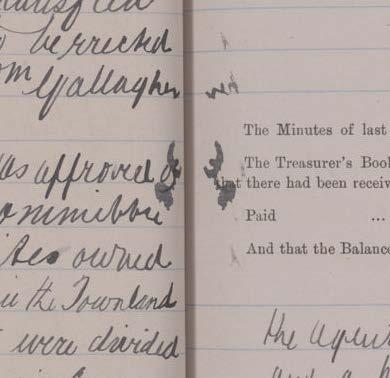 be erected
Gallagher
was approved of
Committee
sites owned
in the Townland
were divided
The Minutes of last
The Treasurer's Book
that there had been receiv
Paid ...
And that the Balance
the agent